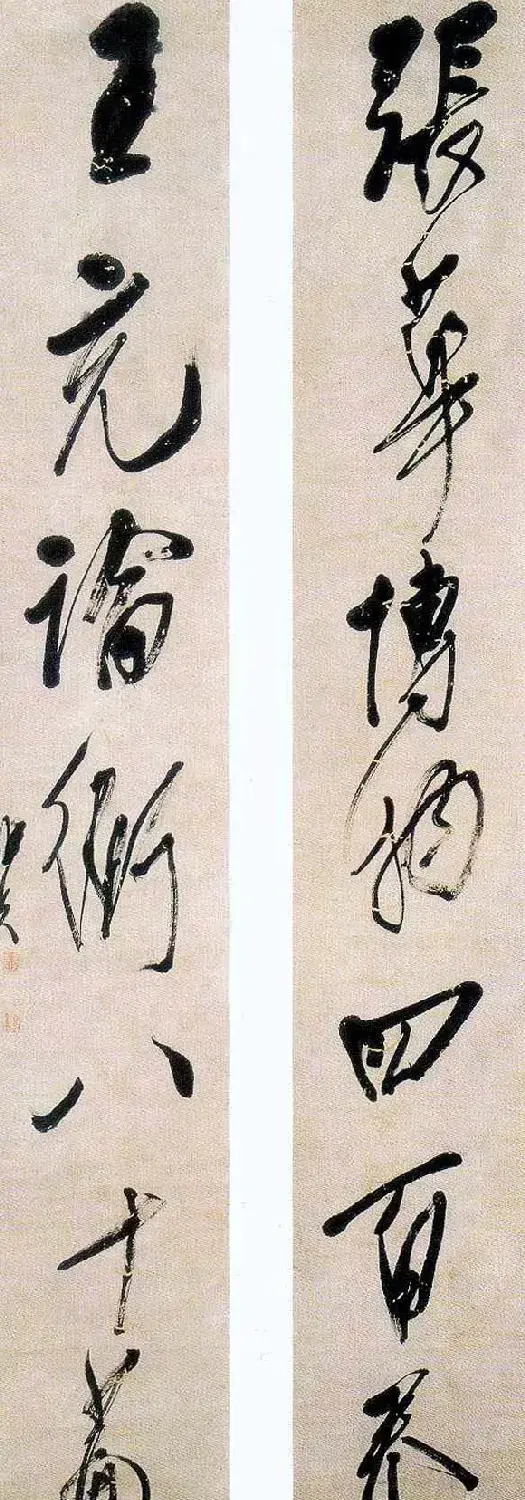 張華博物四百卷
王充論衡八十篇